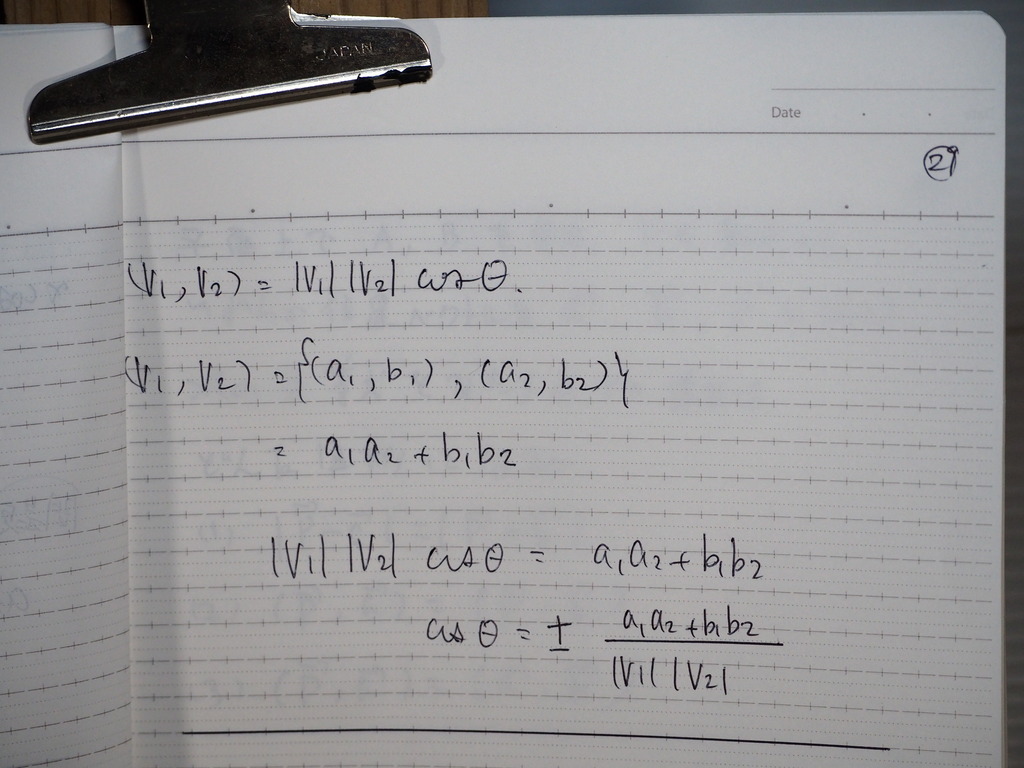 JAPAN
Date
29
(V1, V2) = |V1| |V2| cos θ.
(V1, V2) = {(a1, b1), (a2, b2)}
= a1 a2 + b1 b2
|V1| |V2| cos θ = a1 a2 + b1 b2
cos θ = ± a1 a2 + b1 b2
|V1| |V2|